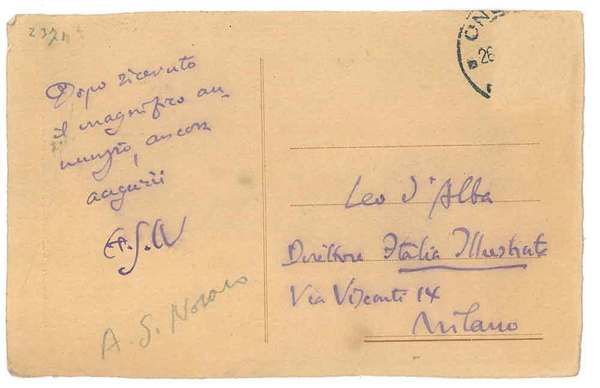 2371
Dopo ricevuto
il magnifico an-
nunzio, ancora
auguri
A. S. N
A. S. Novaro
26
Leo d'Alba
Direttore Italia Illustrata
Via Visconti 14
Milano